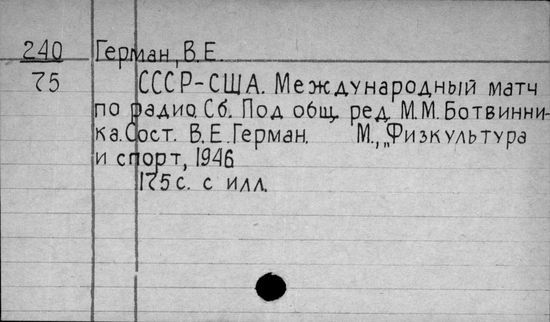 240 Герман, В.Е.
75 СССР-США. Международный матч
по радио. Сб. Под общ. ред. М.М. Ботвинни-
ка. Сост. В.Е. Герман. М., „Физкультура
и спорт, 1946
175 с. с илл.